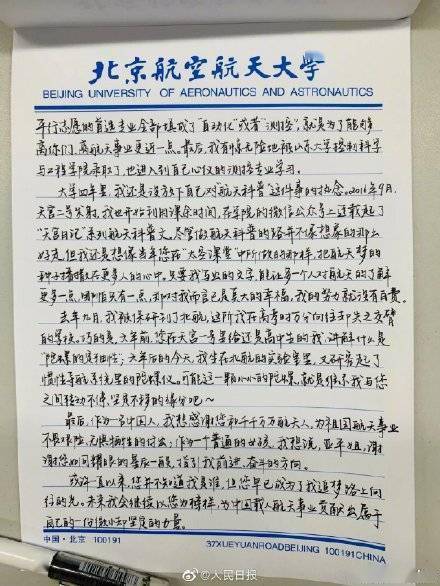 北京航空航天大学
BEIJING UNIVERSITY OF AERONAUTICS AND ASTRONAUTICS
平行志愿的首选专业全部填成了“自动化”或者“测控”,就是为了能够
离你们、离航天事业更近一点。最后,我有惊无险地被山东大学控制科学
与工程学院录取了,也进入到自己心仪的测控专业学习。
大学四年里,我还是没放下自己对“航天科普”这件事的执念。2016年9月,
天宫二号发射,我也开始利用课余时间,在学院的微信公众号上连载起了
“天宫日记”系列航天科普文。尽管做航天科普的路并不像想象的那么
好走,但我还是想像去年您在“太空课堂”中所做的那样,把航天梦的
种子播撒在更多人的心中。只要我写出的文字,能让多一个人对航天的了解
更多一点,哪怕只有一点,那对我而言也是莫大的幸福,我的努力就没有白费。
去年九月,我被保研到了北航,这所我在高考时万分向往却失之交臂
的学校。巧的是,六年前,您在天宫一号里给还是高中生的我,讲解什么是
“陀螺的定轴性”;六年后的今天,我坐在北航的实验室里,又研究起了
惯性导航系统里的陀螺仪。可能这一颗小小的陀螺,就是维系我与您
之间转动不停、坚定不移的缘分吧~
最后,作为一名中国人,我想感谢您和千千万万航天人,为祖国航天事业
不畏艰险、无惧牺牲的付出;作为一个普通的女孩,我想说,亚平姐,谢
谢您如同耀眼的星辰一般,指引我前进、奋斗的方向。
或许一直以来,您并不知道我是谁,但您早已成为了我追梦路上何
行的光。未来我会继续以您为榜样,为中国载人航天事业贡献出属于
自己的一份微小却坚定的力量。
中国·北京 100191
37XUEYUANROADBEIJING 100191CHINA
@人民日报